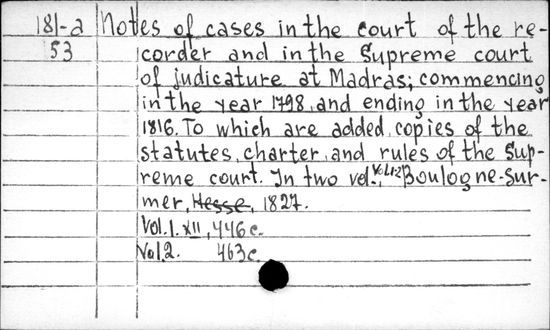 181-a Notes of cases in the court of the re-
53 corder and in the Supreme court
of judicature at Madras; commencing
in the year 1798, and ending in the year
1816. To which are added, copies of the
statutes, charter, and rules of the Sup-
reme court. In two vol., Vol.1-2 Boulogne-sur-
mer, Hesse, 1827.
Vol.1. XII, 446 c.
Vol.2. 463 c.